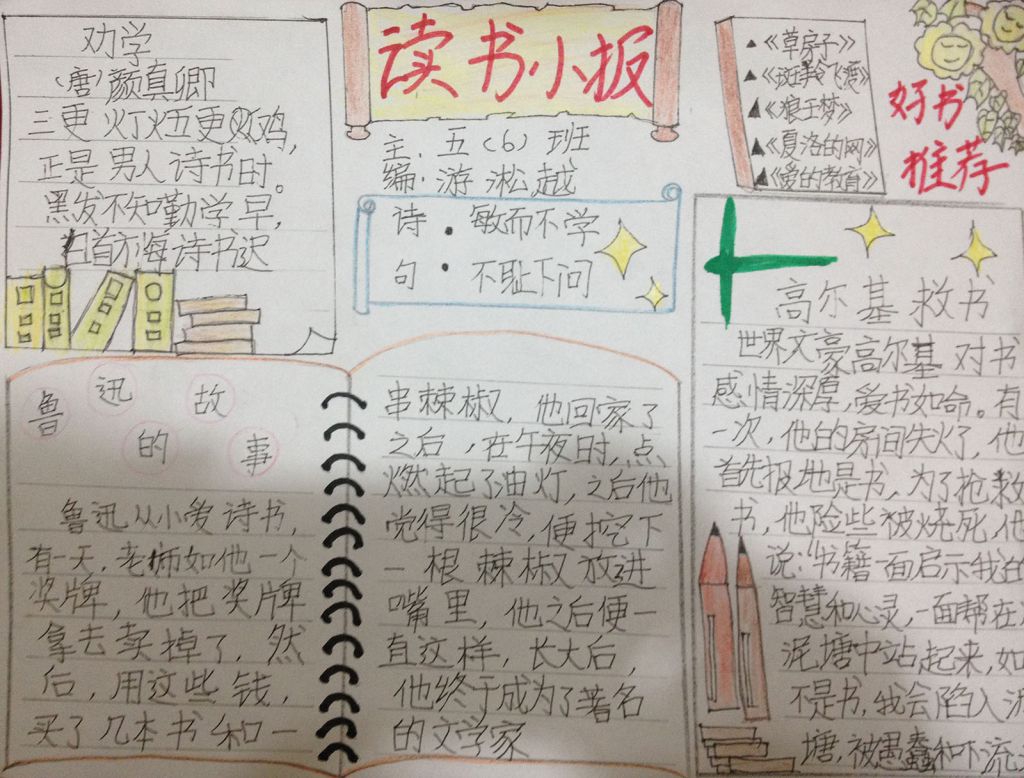 读书小报
主：五（6）班
编：游淞越
劝学
（唐）颜真卿
三更灯火五更鸡，
正是男人诗书时。
黑发不知勤学早，
白首方悔诗书迟
诗：敏而不学
句 不耻下问
▲《草房子》
▲《斑羚飞渡》
▲《狼王梦》
▲《夏洛的网》
▲《爱的教育》
好书
推荐
鲁迅故的事
鲁迅从小爱诗书，
有一天，老师如他一个
奖牌，他把奖牌
拿去卖掉了，然
后，用这些钱，
买了几本书和一
串棘椒，他回家了
之后，在午夜时，点
燃起了油灯，之后他
觉得很冷，便挖下
一根棘椒放进
嘴里，他之后便一
直这样，长大后，
他终于成为了著名
的文学家
高尔基救书
世界文豪高尔基对书
感情深厚，爱书如命。有
一次，他的房间失火了，他
首先报地是书，为了抢救
书，他险些被烧死，他
说：“书籍一面启示我的
智慧和心灵，一面帮在
泥塘中站起来，如
不是书，我会陷入泥
塘，被愚蠢和下流